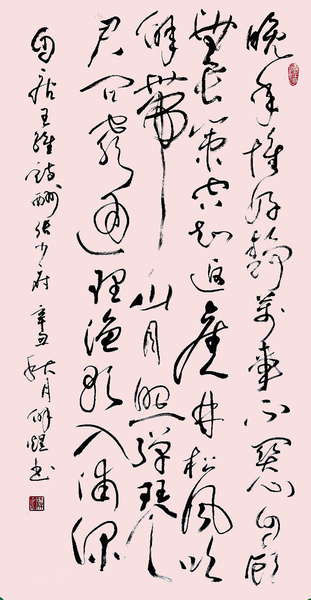 晚年惟好靜萬事不關心自顧
無長策空知返舊林松風吹
解帶山月照彈琴
君問窮通理漁歌入浦深
唐王維詩酬張少府辛丑秋月解書